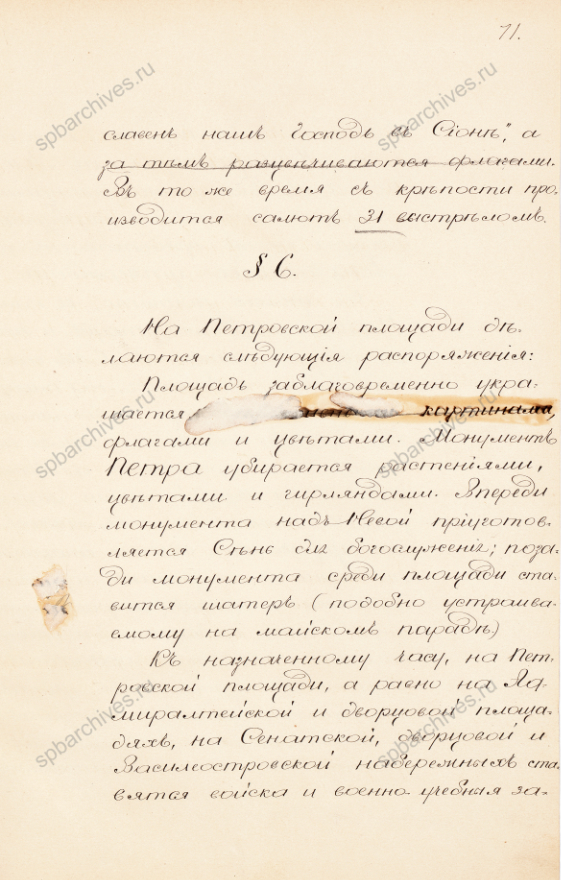 71.
славенъ нашъ Господь въ Сіонѣ", а
за тѣмъ разцвѣчиваются флагами.
Въ то же время съ крѣпости про-
изводится салютъ 31 выстрѣломъ.
§ 6.
На Петровской площади дѣ-
лаются слѣдующія распоряженія:
Площадь заблаговременно укра-
шается картинами,
флагами и цвѣтами. Монументъ
Петра убирается растеніями,
цвѣтами и гирляндами. Впереди
монумента надъ Невой пріуготов-
ляется Сѣнь для богослуженія; поза-
ди монумента среди площади ста-
вится шатеръ (подобно устраива-
емому на майскомъ парадѣ)
Къ назначенному часу, на Пет-
ровской площади, а равно на Ад-
миралтейской и дворцовой площа-
дяхъ, на Сенатской, дворцовой и
Василеостровской набережныхъ ста-
вятся войска и военно-учебныя за-
spbarchives.ru
spbarchives.ru
spbarchives.ru
spbarchives.ru
spbarchives.ru
spbarchives.ru